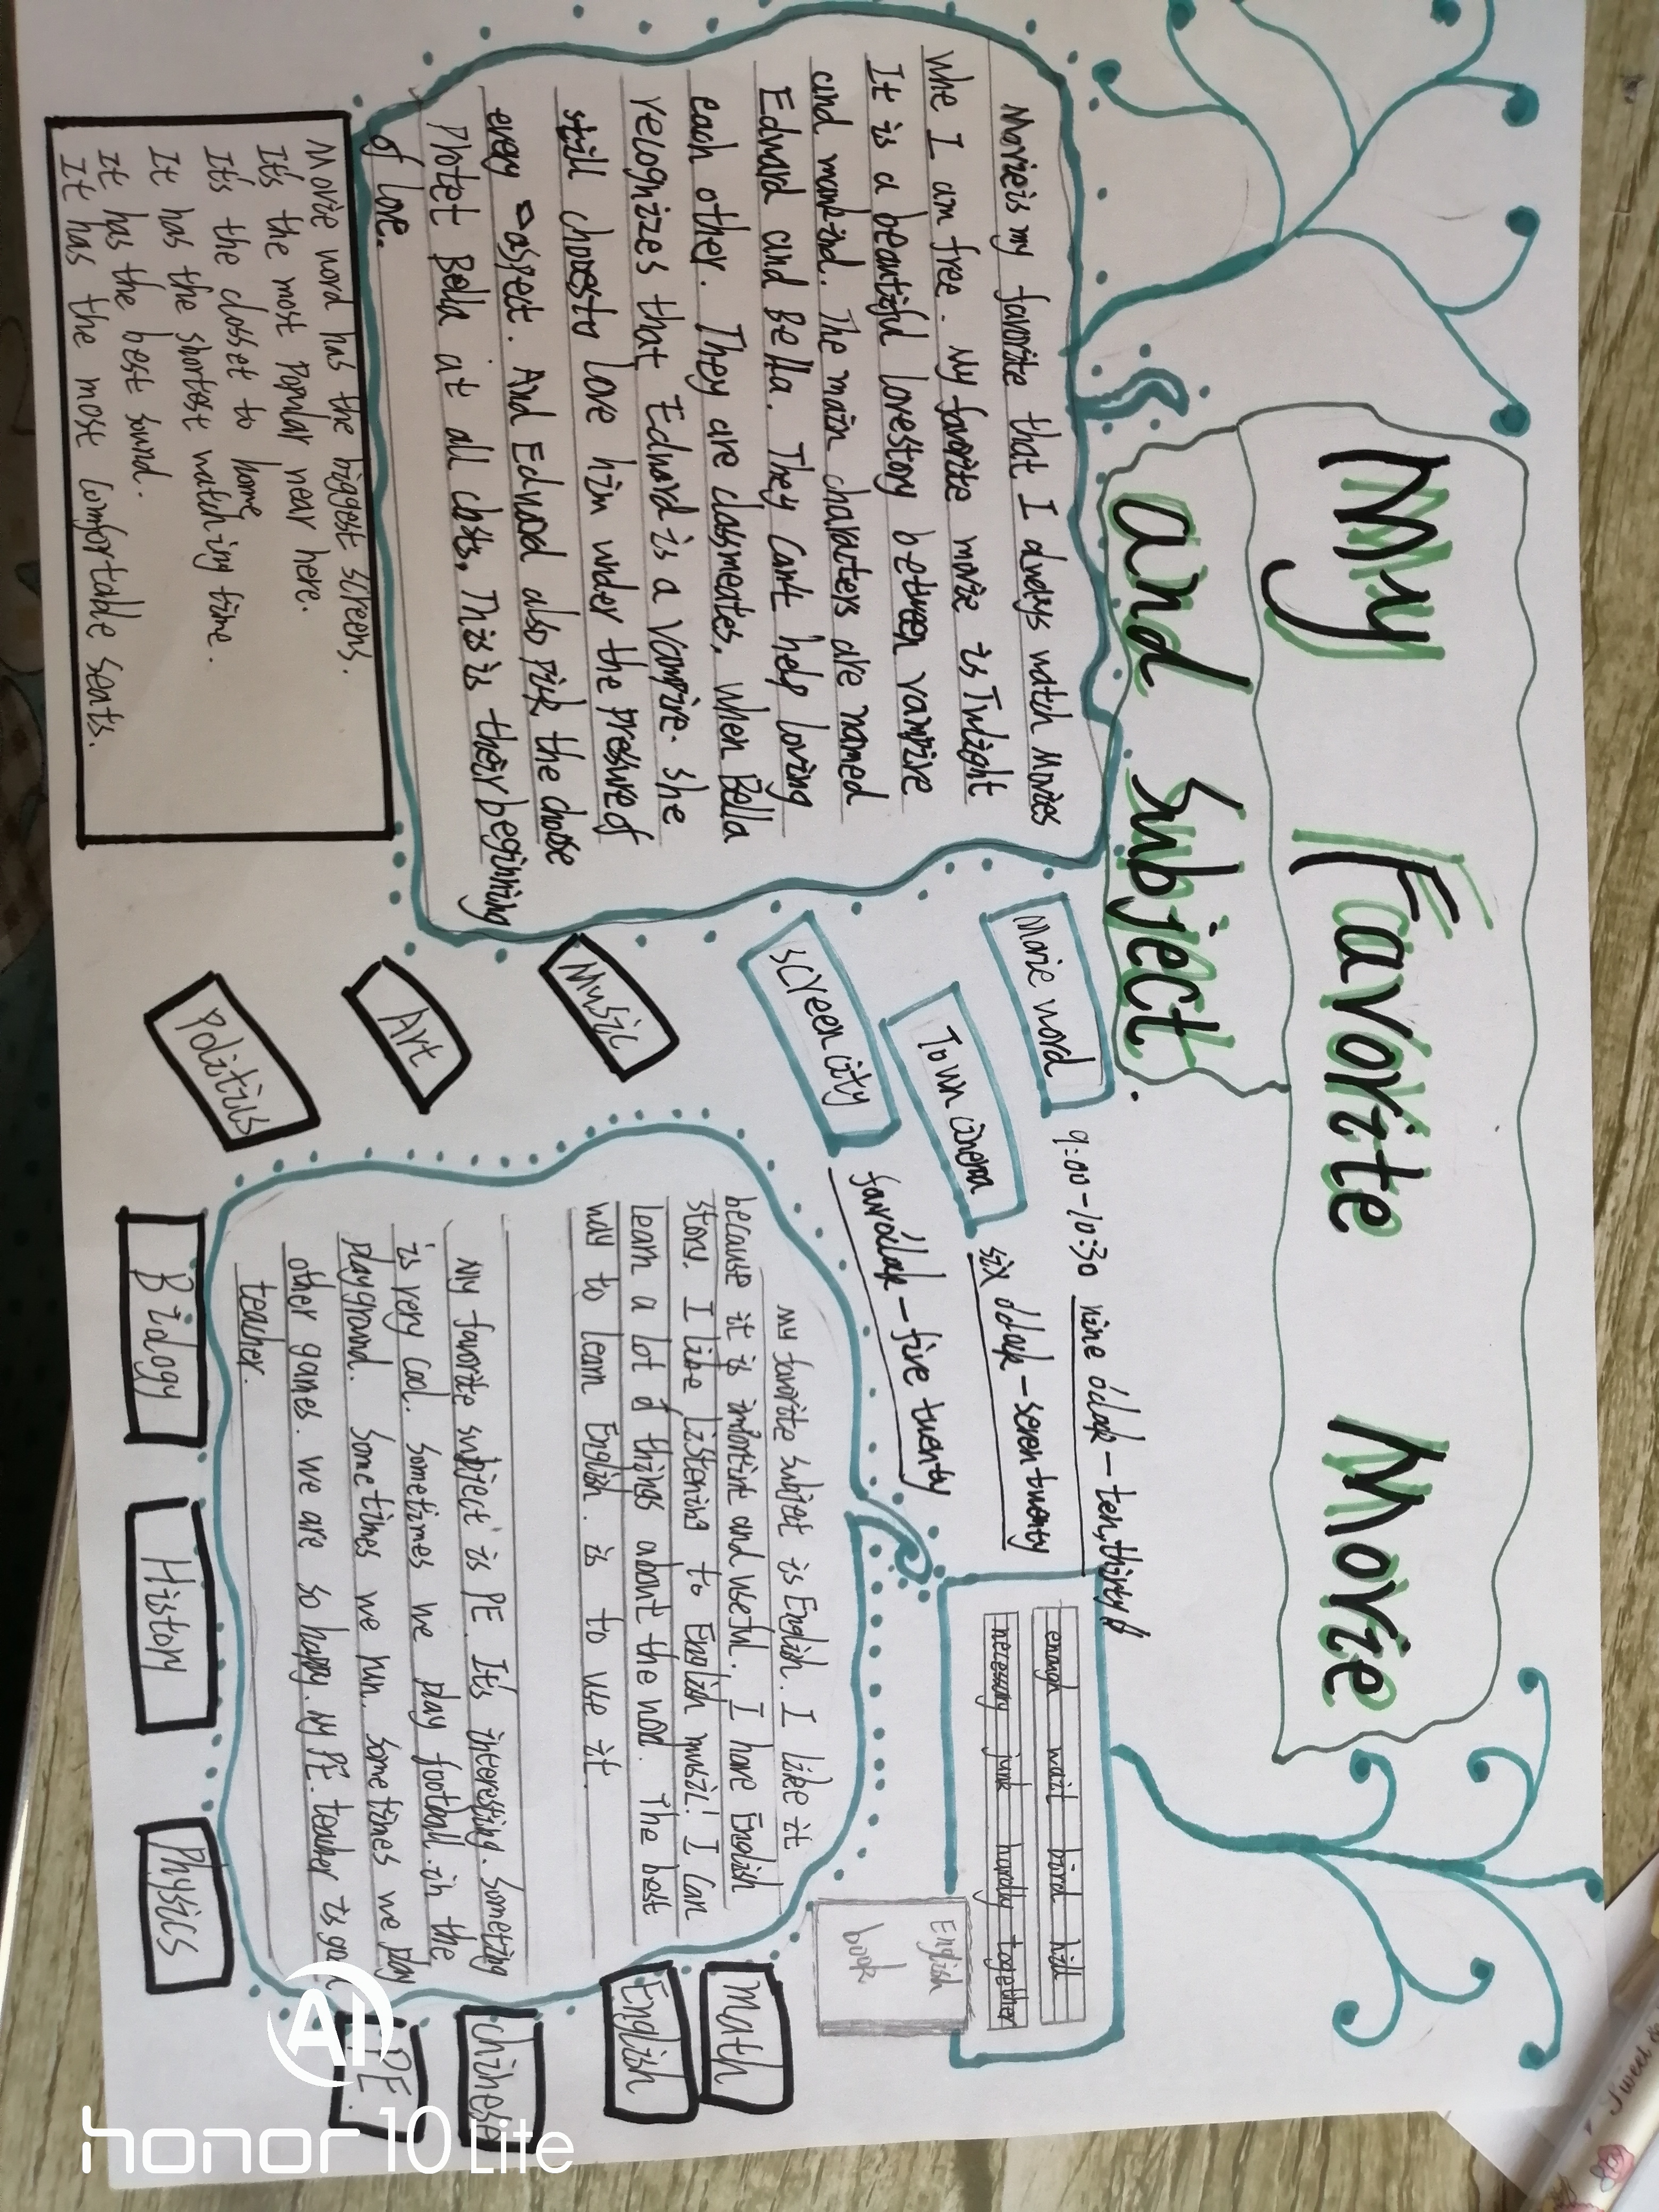 My Favorite Movie
and Subject
Movie is my favorite that I always watch Movies
Whe I am free. My favorite movie is Twilight
It is a beautiful lovestory between vampire
and mankind. The main characters are named
Edward and Bella. They can't help loving
each other. They are classmeates. When Bella
relognizes that Edward is a vampire. She
still chooes to love him under the pressure of
every aspect. And Edward also pick the choose
Plotet Bella at all costs. This is their beginning
of love.
Movie word has the biggest screens.
It's the most popular near here.
It's the closet to home
It has the shortest watching time.
It has the best sound.
It has the most comfortable seats.
Movie word 9:00-10:30 nine o'clok - ten,thirty
Town cinema six o'clok - seven twenty
Screen city four o'clok - five twenty
Music
Art
Politics
enough wait bird hill
necessary junk hardly together
English
book
My favorite subject is English. I like it
because it is imfortint and useful. I have English
story. I like listening to English music! I can
learn a lot of things about the word. The best
way to learn English. is to use it.
My favorite subject is PE. It's interesting. Someting
is very cool. Sometimes we play football in the
playground. Sometimes we run. Sometimes we play
other games. we are so happy. My PE. teacher is
teacher.
Biology
History
Physics
PE.
Chinese
English
Math
AI
HONOR 10 Lite